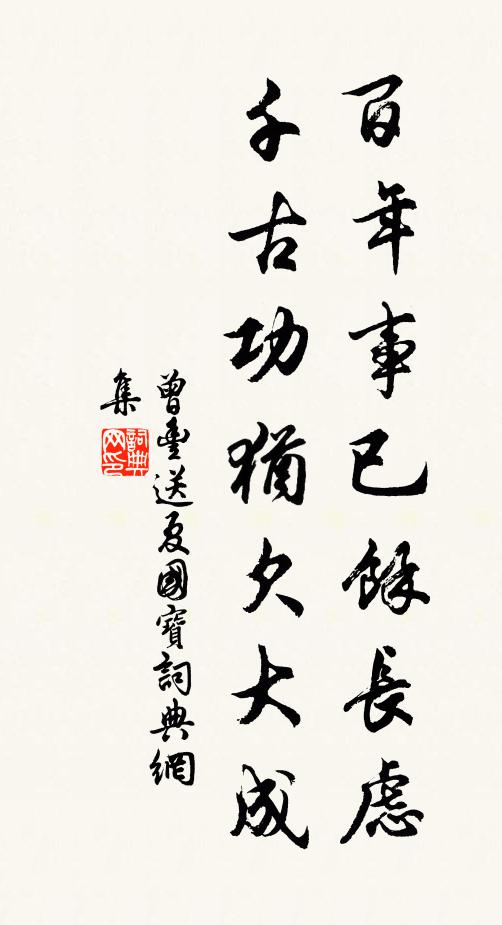 百年事已餘長慮
千古功猶欠大成
曾豐送夏國寶詞典網
集
詞典
网印